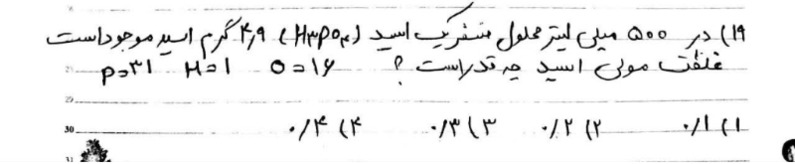 ۱۹) در ۵۰۰ میلی لیتر محلول فسفریک اسید (H۳PO۴) ۴٫۹ گرم اسید موجود است
غلظت مولی اسید چه قدر است ؟ O=۱۶ H=۱ P=۳۱
۱) ۰/۱ ۲) ۰/۲ ۳) ۰/۳ ۴) ۰/۴
30